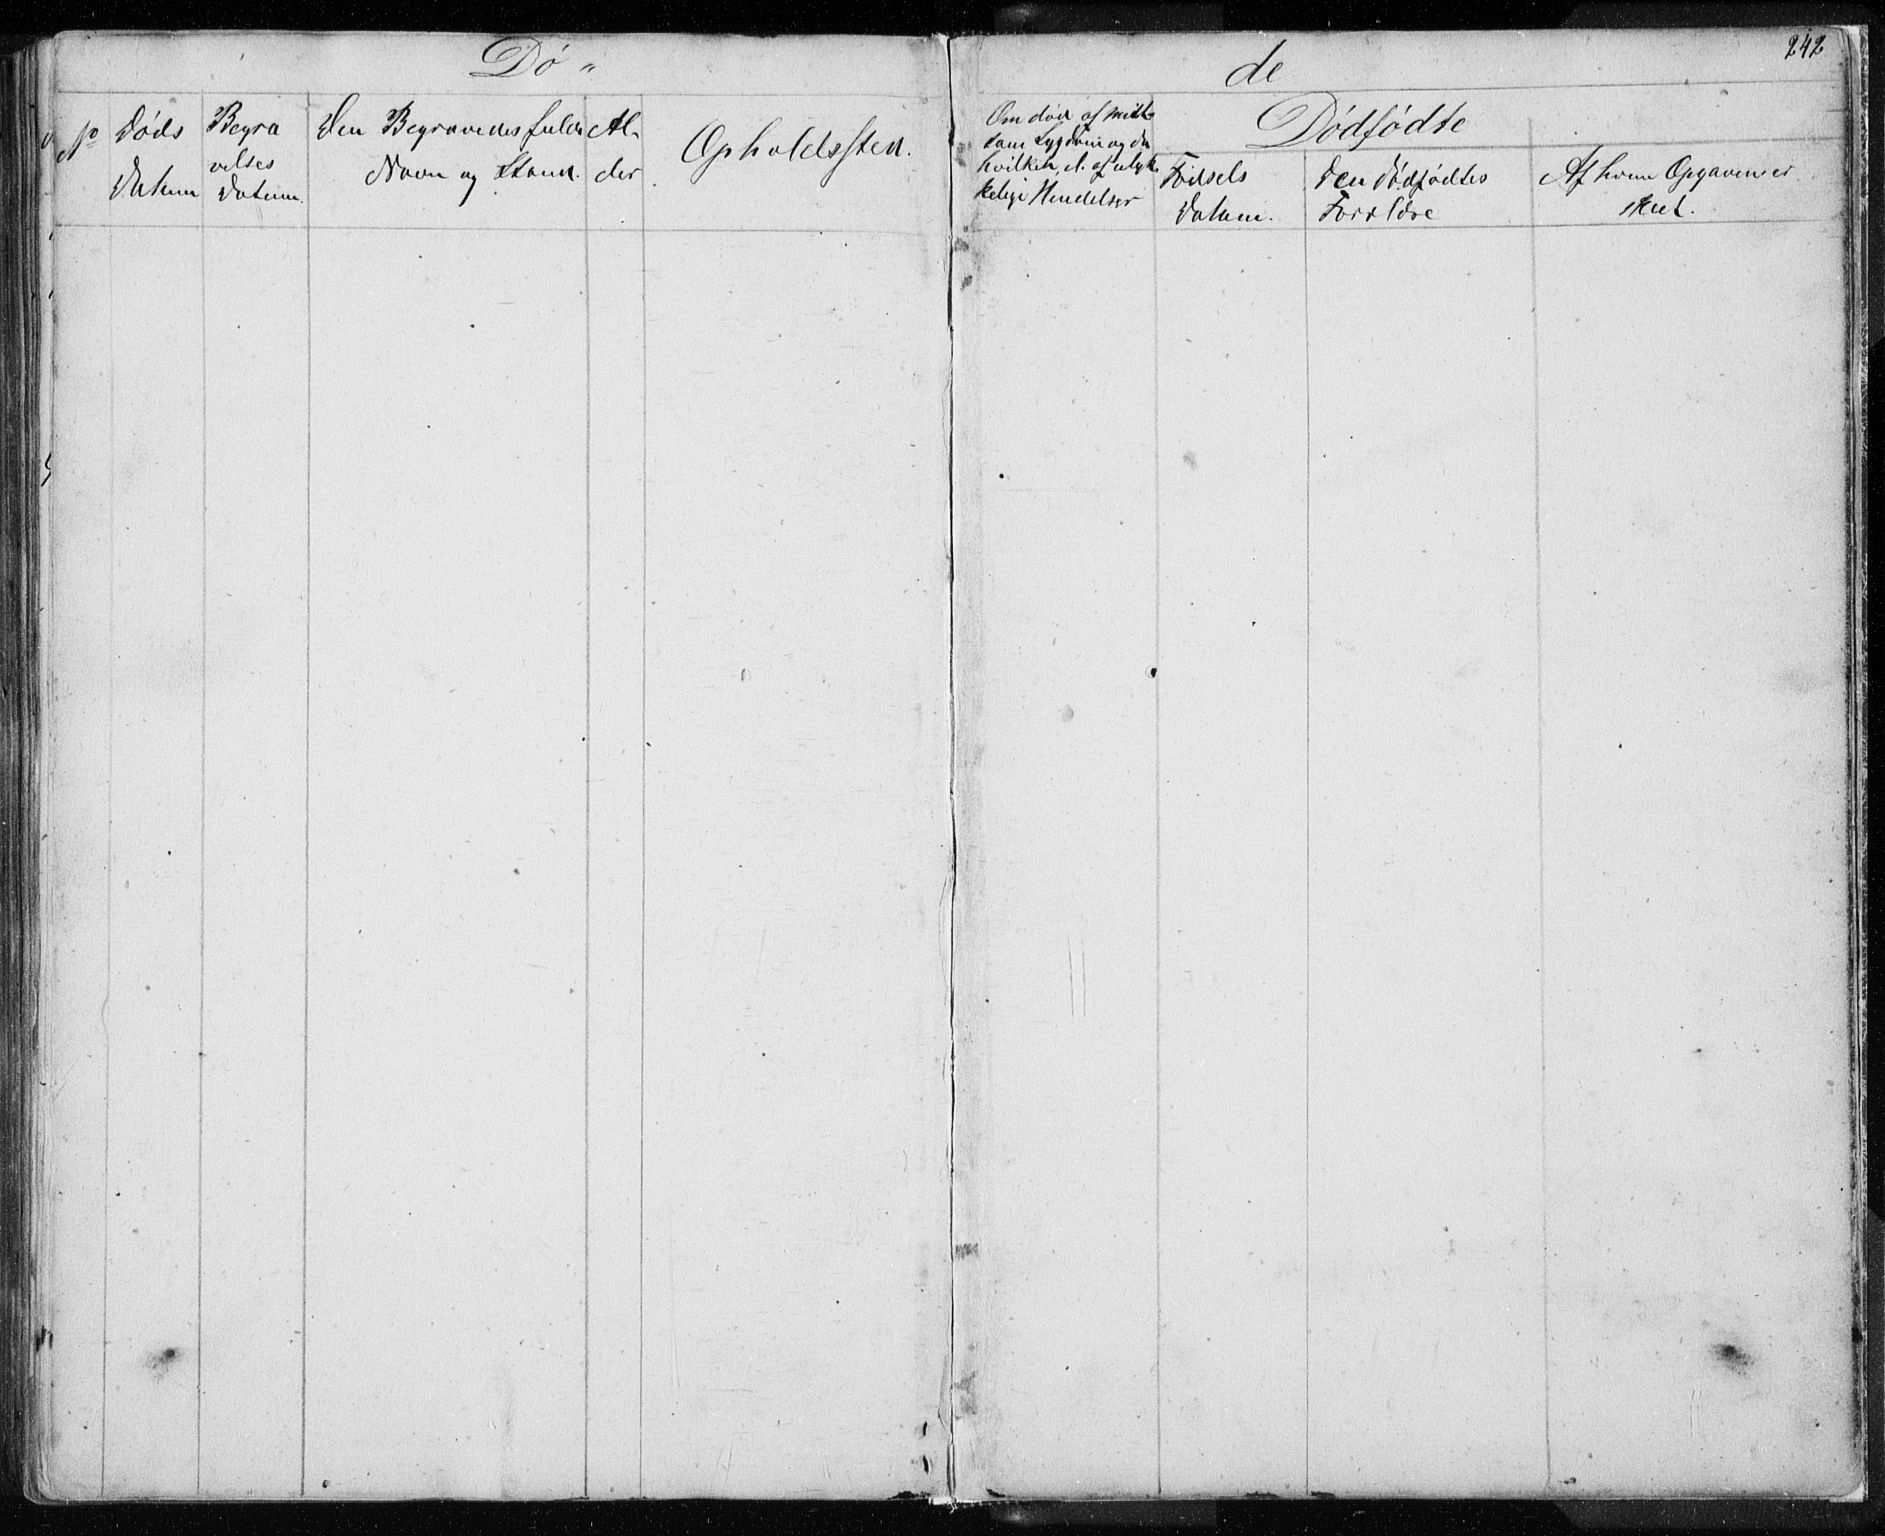 Dø „
de
242
No
Døds
Datum
Begra
velses
Datum.
Den Begravedes fulde
Navn og Stand.
Al-
der
Opholdssted.
Om død af mitt-
som Sygdom og da
hvilken, el. af ulyk-
kelige Hendelser
Dødfødte
Fødsels
Datum.
Den Dødfødtes
Forældre
Af hvem Opgaven er
skeet.